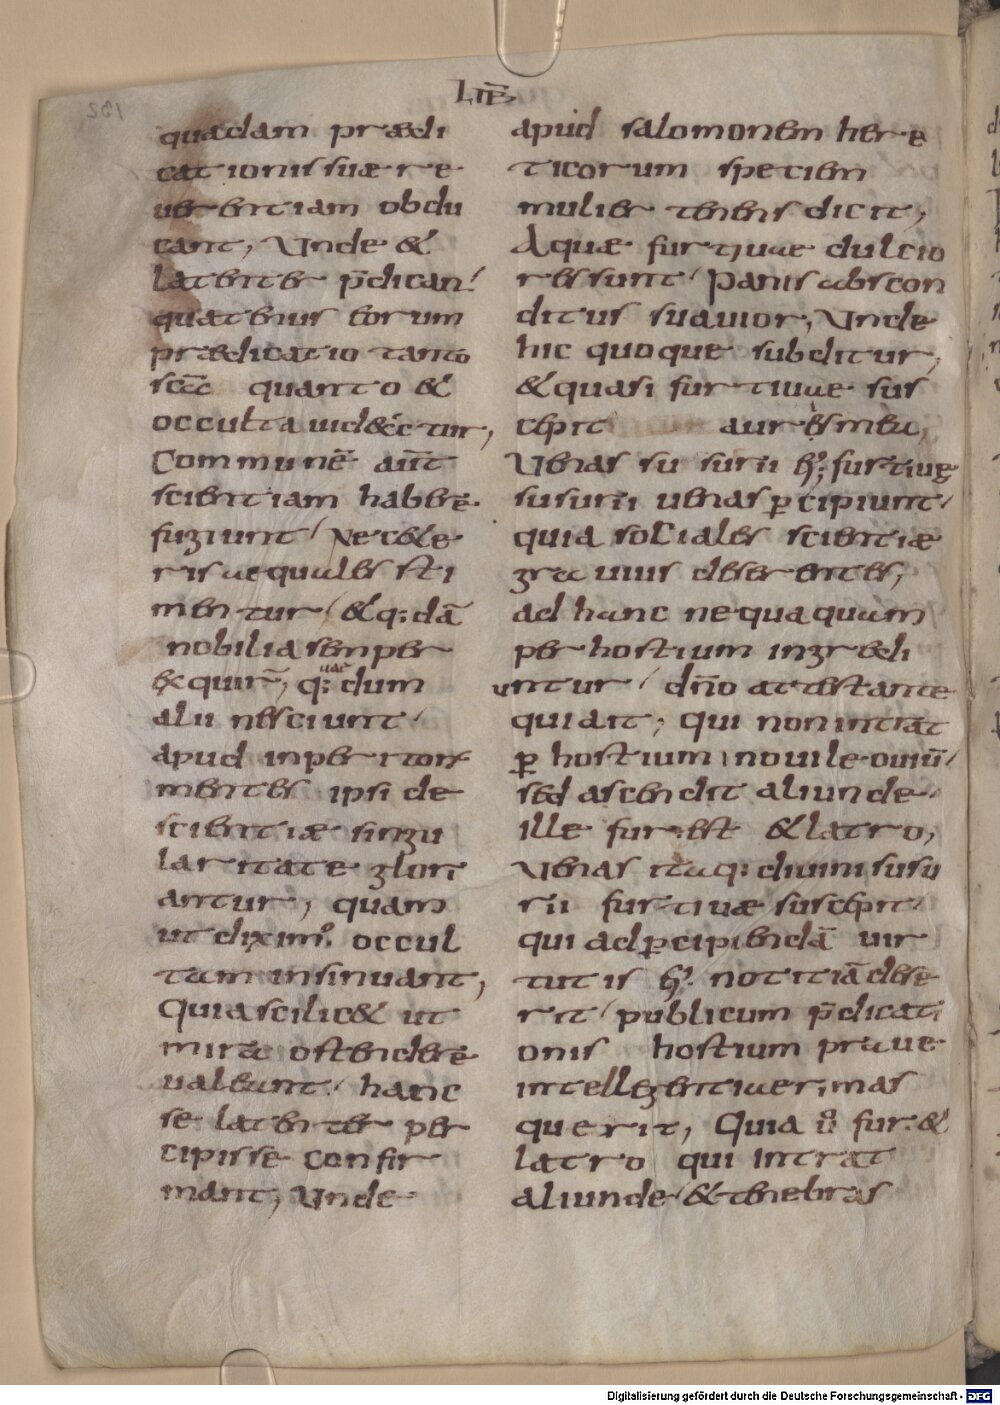 LIB
quadam prædi
cationis suæ re
uerentiam obdu
cant; Unde &
latenter p̄dican⸝
quatenus eorum
prædicatio tanto
sc̄ā quanto &
occulta uid&ur;
Commune᷒ aūt
scientiam habere
fugiunt / Ne cete
ris aequales sti
mentur / & q;dā
nobilia semper
exquir̄; q; dum
alii nesciunt /
apud inperitor
mentes ipsi de
scientiæ singu
laritate glori
antur; quam
ut dixim᷒ occul
tam insinuant;
Quia scilic& ut
mira ostendere
ualeant / hanc
se latenter per
cipisse confir
mant; Unde
apud salomonem here
ticorum speciem
mulier tenens dicit;
Aquæ furtiuae dulcio
res sunt / Panis abscon
ditus suauior; Unde
hic quoque subditur;
& quasi furtiuae sus
cepit auris mea;
Uenas su surii furtiuę
susurii uenas ꝑcipiunt /
quia sociales scientiæ
gratuius deserentes;
ad hanc nequaquam
per hostium ingredi
untur / dn̄o attestante
qui ait; qui non intrat
ꝑ hostium in ouile ouiū /
sed ascendit aliunde
ille fur est & latro;
Uenas itaq; diuini susu
rii furtiuæ suscepit /
qui ad ꝑcipiendā uir
tutis notitiā dese
rit / publicum p̄dicati
onis hostium praue
intellegentiae rimas
querit; Quia u᷒ fur &
latro qui intrat
aliunde / & tenebras
Digitalisierung gefördert durch die Deutsche Forschungsgemeinschaft - DFG